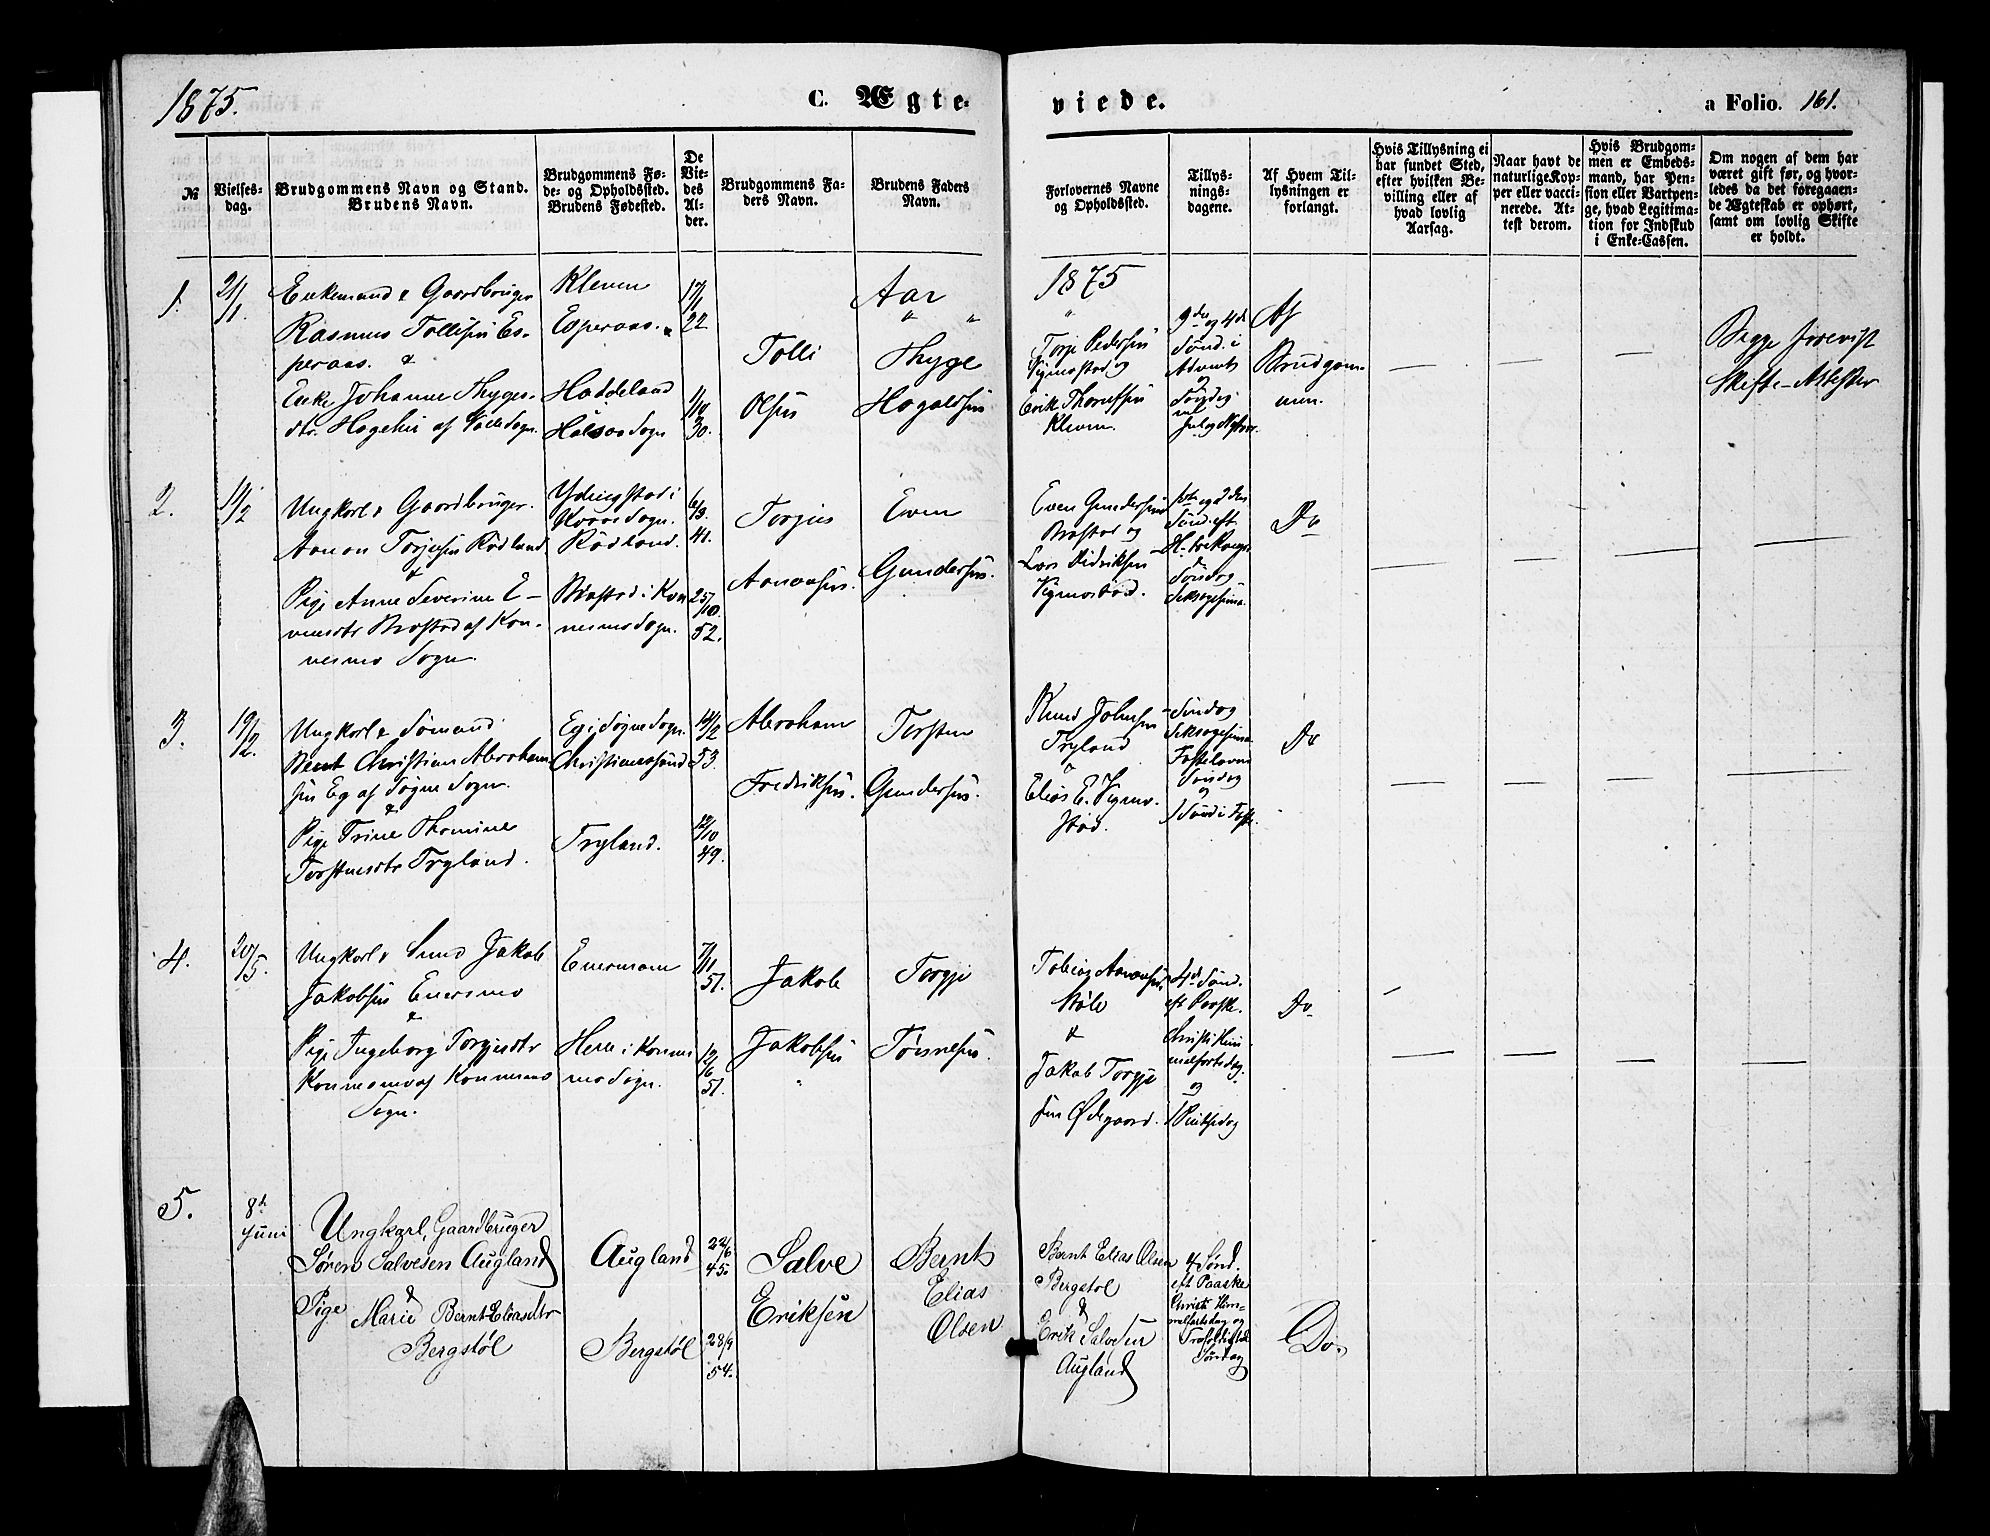 1875.
C. Ægte-
viede.
a Folio. 161.
№
Vielses-
dag.
Brudgommens Navn og Stand.
Brudens Navn.
Brudgommens Fø-
de- og Opholdssted.
Brudens Fødested.
De
Vie-
des
Al-
der.
Brudgommens Fa-
ders Navn.
Brudens Faders
Navn.
Forlovernes Navne
og Opholdssted.
Tillys-
nings-
dagene.
Af Hvem Til-
lysningen er
forlangt.
Hvis Tillysning ei
har fundet Sted,
efter hvilken Be-
villing eller af
hvad lovlig
Aarsag.
Naar havt de
naturlige Kop-
per eller vacci-
nerede. At-
test derom.
Hvis Brudgom-
men er Embeds-
mand, har Pen-
sion eller Vartpen-
ge, hvad Legitima-
tion for Indskud
i Enke-Cassen.
Om nogen af dem har
været gift før, og hvor-
ledes da det foregaaen-
de Ægteskab er ophørt,
samt om lovlig Skifte
er holdt.
Aar
1875
1.
21/1
Enkemand & Gaardbruger
Rasmus Tollefsen Es-
peraas. &
Enke Johanne Thyges-
dtr. af Sogn.
Kleven
Esperaas.
Haddeland
Halsaa Sogn
17/1
22
1/10
30.
Tolli
Olsen
Thyge
Hogaldsen
Torje Pedersen
Vigmostad og
Erik
Kleven.
3die og 4de
Sønd. i
Advent
og
Søndag
ml
Jul og Nytaar.
Af
Brudgom-
men.
Begge forevist
Skifte-Attester
2.
11/2
Ungkarl & Gaardbruger
Aanon Torjusen Rødland
&
Pige Anne Severine E-
vensdtr Brostad af Kon-
nesmo Sogn.
Ydingstad i
Sogn.
Rødland.
Brostad i Kon
nesmo Sogn.
6/3.
41.
25/10
52.
Torjus
Aanonsen.
Even
Gundersen.
Even Gundersen
Brostad og
Lars Didriksen
Vigmostad.
1ste og 2den
Sønd. eft.
H. tre Konger
Søndag
Seksagesima
Do
3.
19/2.
Ungkarl & Sømand
Bent Christian Abraham-
sen Eg af Søgne Sogn.
&
Pige Trine Thomine
Torstensdtr Tryland.
Eg i Søgne Sogn.
Christianssand
Tryland.
14/2
53.
12/10
49.
Abraham
Fredriksen.
Torsten
Gundersen.
Knud Johnsen
Tryland
&
Elias E. Vigmo-
stad.
Søndag
Seksagesima
Fastelavns
Søndag
og
1 Sønd i Faste.
Do
4.
20/5.
Ungkarl & Smed Jakob
Jakobsen Enersmo
&
Pige Ingeborg Torgjesdtr
Konnesmo af Konnesmo
Sogn.
i Konnes
mo Sogn.
7/11
51.
12/6
51.
Jakob
Jakobsen
Torgje
Tørresen.
Tobias Aanonsen
&
Jakob Torgje
sen Ødegaard.
4de Sønd.
eft Paaske.
Christi Him
melfartsdag
og
1 Pintsedag
Do
5.
8de
Juni
Ungkarl, Gaardbruger
Søren Salvesen Augland
&
Pige Marie Bernt-Eliasdtr
Bergstøl
Augland
Bergstøl
22/6
45.
28/9
54.
Salve
Eriksen
Bernt
Elias
Olsen
Bernt Elias Olsen
Bergstøl
&
Erik Salvesen
Augland
4 Sønd.
eft Paaske
Christi Him-
melfartsdag og
Trefoldigheds
Søndag
Do.